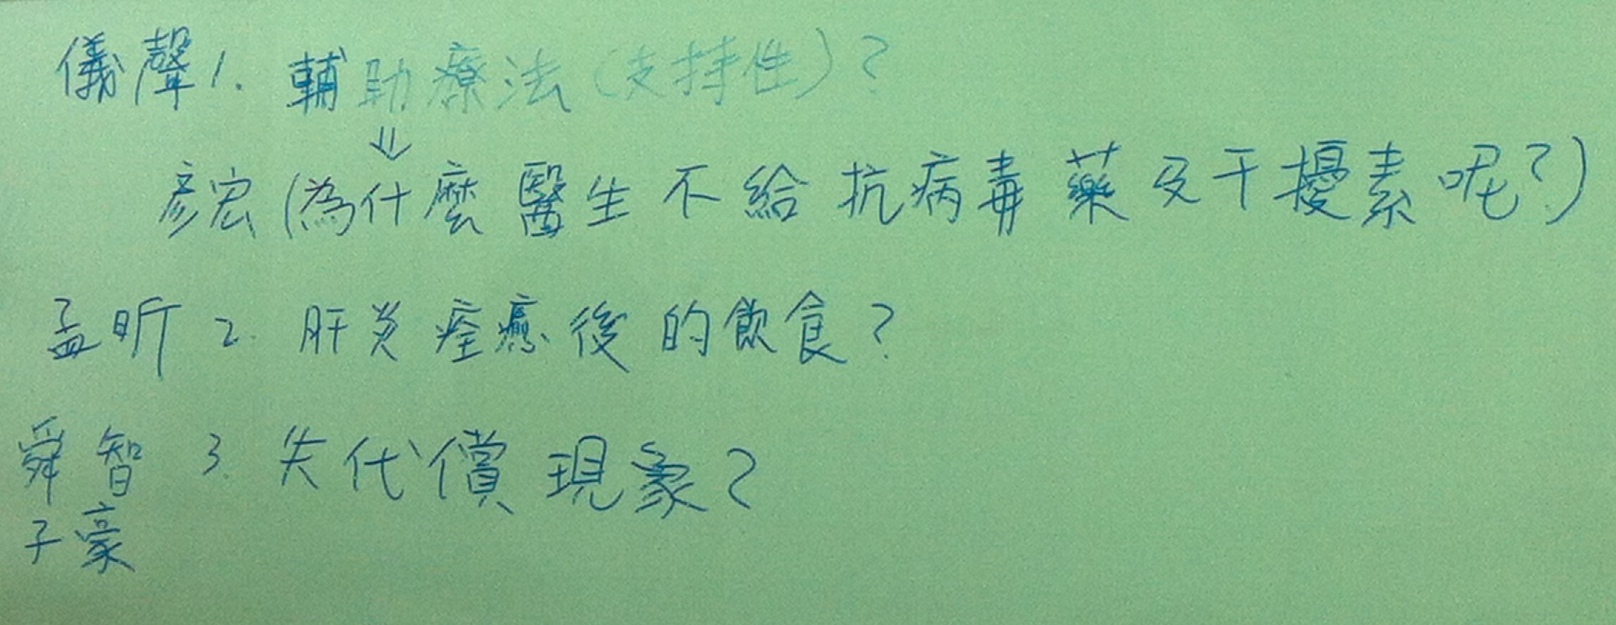 儀聲1. 輔助療法(支持性)?
⇓
彥宏(為什麼醫生不給抗病毒藥及干擾素呢?)
孟昕 2. 肝炎痊癒後的飲食?
舜智 3. 失代償現象?
子豪